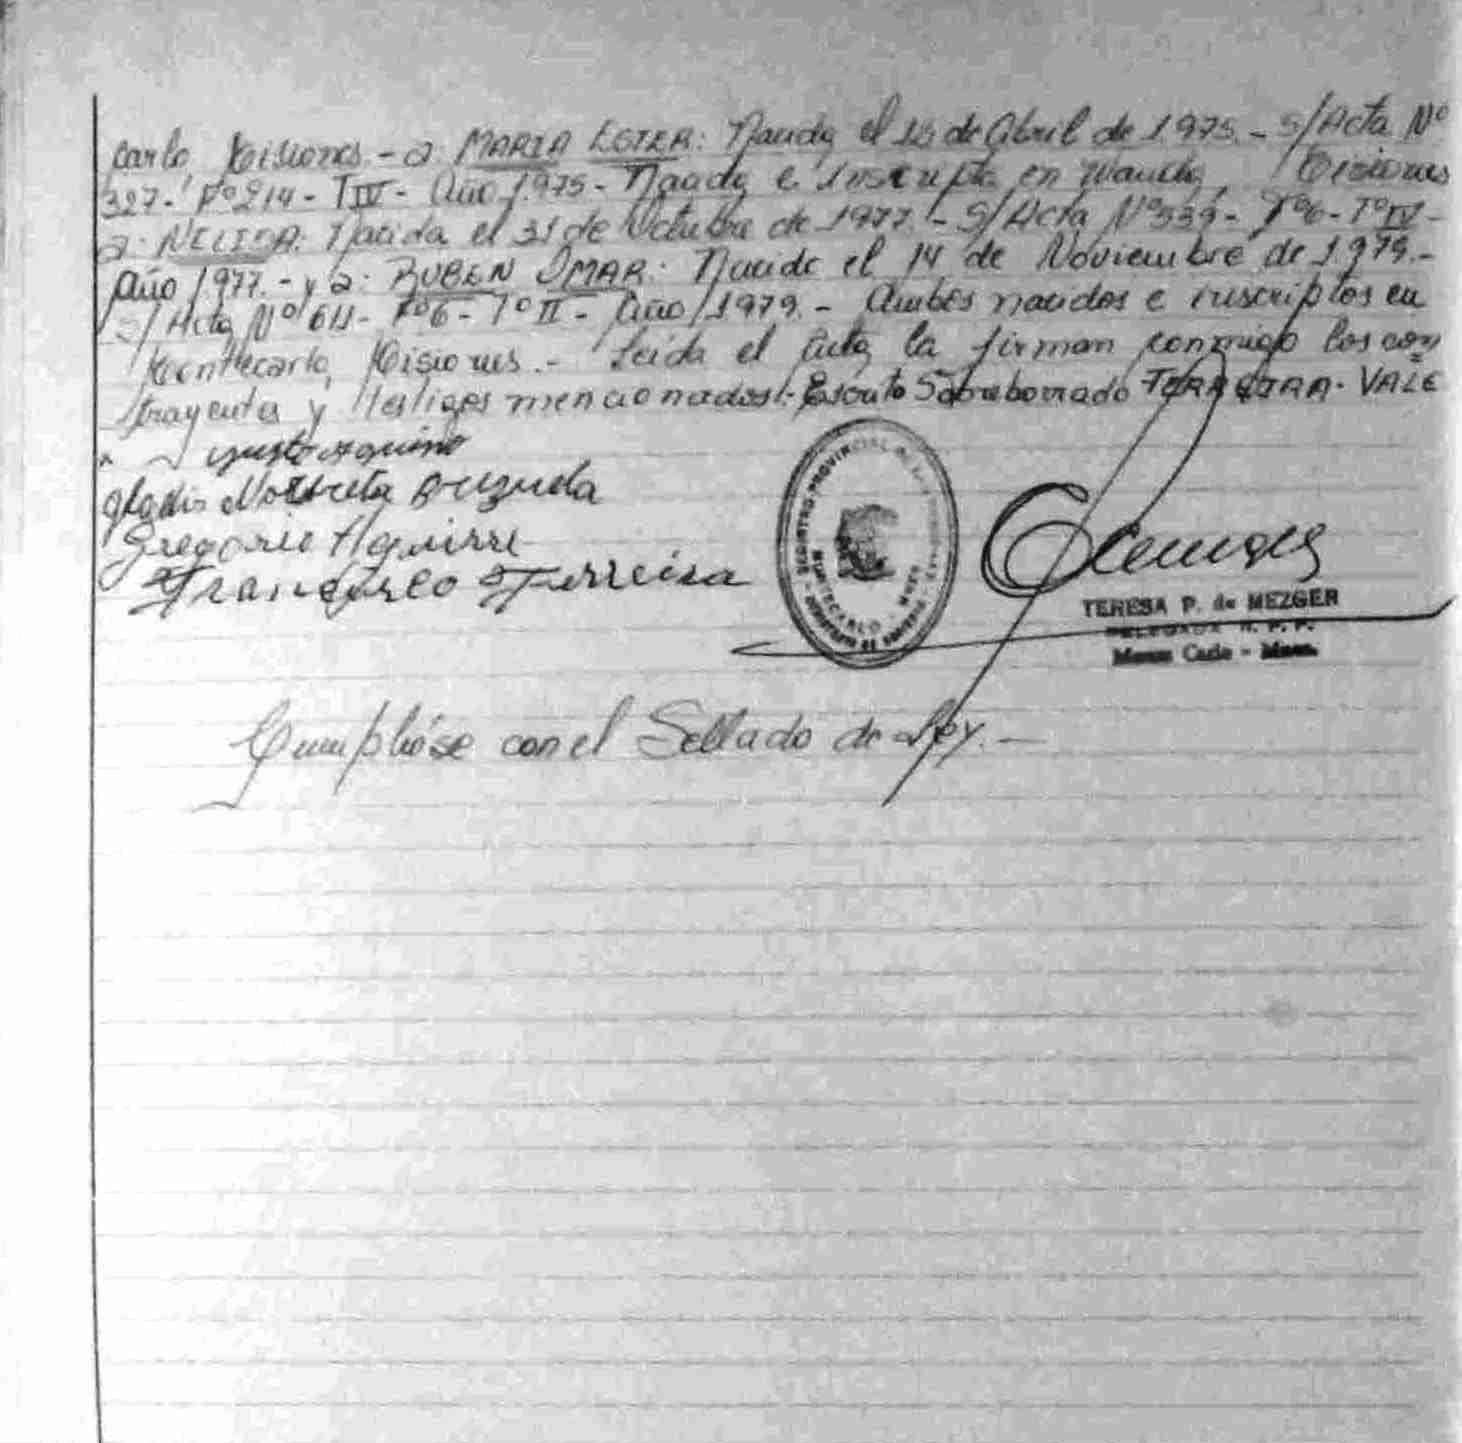 carlo, Misiones.- a MARIA ESTER: Nacida el 18 de Abril de 1.975.- S/Acta Nº
327.- Fº 214 - T IV - Año 1.975 - Nacida e Inscripta en Wanda, Misiones
a: NELIDA: Nacida el 31 de Octubre de 1977.- S/Acta Nº 539 - Fº 6 - Tº IV -
Año 1977.- y a: RUBEN OMAR: Nacido el 14 de Noviembre de 1979.-
S/Acta Nº 611 - Fº 6 - Tº II - Año 1979.- Ambos nacidos e inscriptos en
Montecarlo, Misiones.- Leida el Acta, la firman conmigo los con
trayentes y testigos mencionados.- Escrito Sobreborrado FERREIRA - VALE
Justo Aquino
Gladis Brizuela
Gregorio Aguirre
Francisco Ferreira
REGISTRO PROVINCIAL DE LAS PERSONAS
MONTECARLO
TERESA P. de MEZGER
DELEGADA R. P. P.
Monte Carlo - Mnes.
Cumplióse con el Sellado de Ley.-